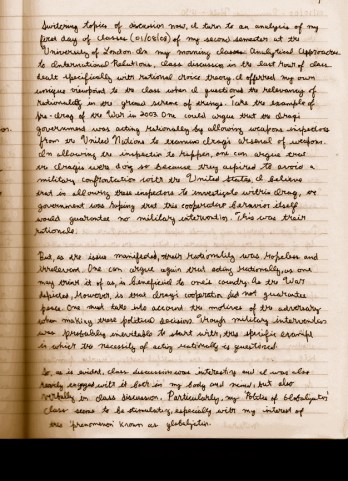 Switching topics of discussion now, I turn to an analysis of my
first day of classes (01/08/08) of my second semester at the
University of London. In my morning class, Analytical Approaches
to International Relations, class discussion in the last hour of class
dealt specifically with rational choice theory. I offered my own
unique viewpoint to the class when I questioned the relevancy of
rationality in the grand scheme of things. Take the example of
the Iraq War in 2003. One could argue that the Iraqi
government was acting rationally by allowing weapons inspectors
from the United Nations to examine Iraq's arsenal of weapons.
In allowing the inspection to happen, one can argue that
the Iraqis were doing so because they aspired to avoid a
military confrontation with the United States. I believe
that in allowing these inspectors to investigate within Iraq, the
government was hoping that this cooperative behavior itself
would guarantee no military intervention. This was their
rationale.
But, as the issue manifested, their rationality was hopeless and
irrelevant. One can argue again that acting rationally, as one
may think of as, is beneficial to one's country. As the War
depicted, however, is that Iraqi cooperation did not guarantee
peace. One must take into account the motives of the adversary
when making these political decisions. Though military intervention
was probably inevitable to start with, this specific example
in which the necessity of acting rationally is questioned.
So, as is evident, class discussion was interesting and I was also
really engaged with it both in my body and mind, but also
verbally in class discussion. Particularly, my Politics of Globalization
class seems to be stimulating, especially with my interest of
this 'phenomenon' known as globalization.